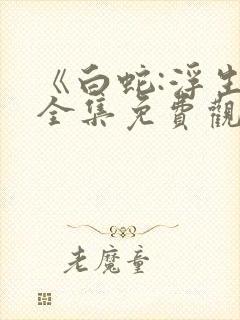 《白蛇:浮生
全集免費觀
老魔童